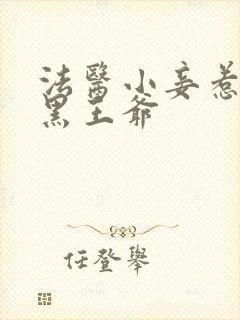 法醫小妾惹
黑王爺
任登舉